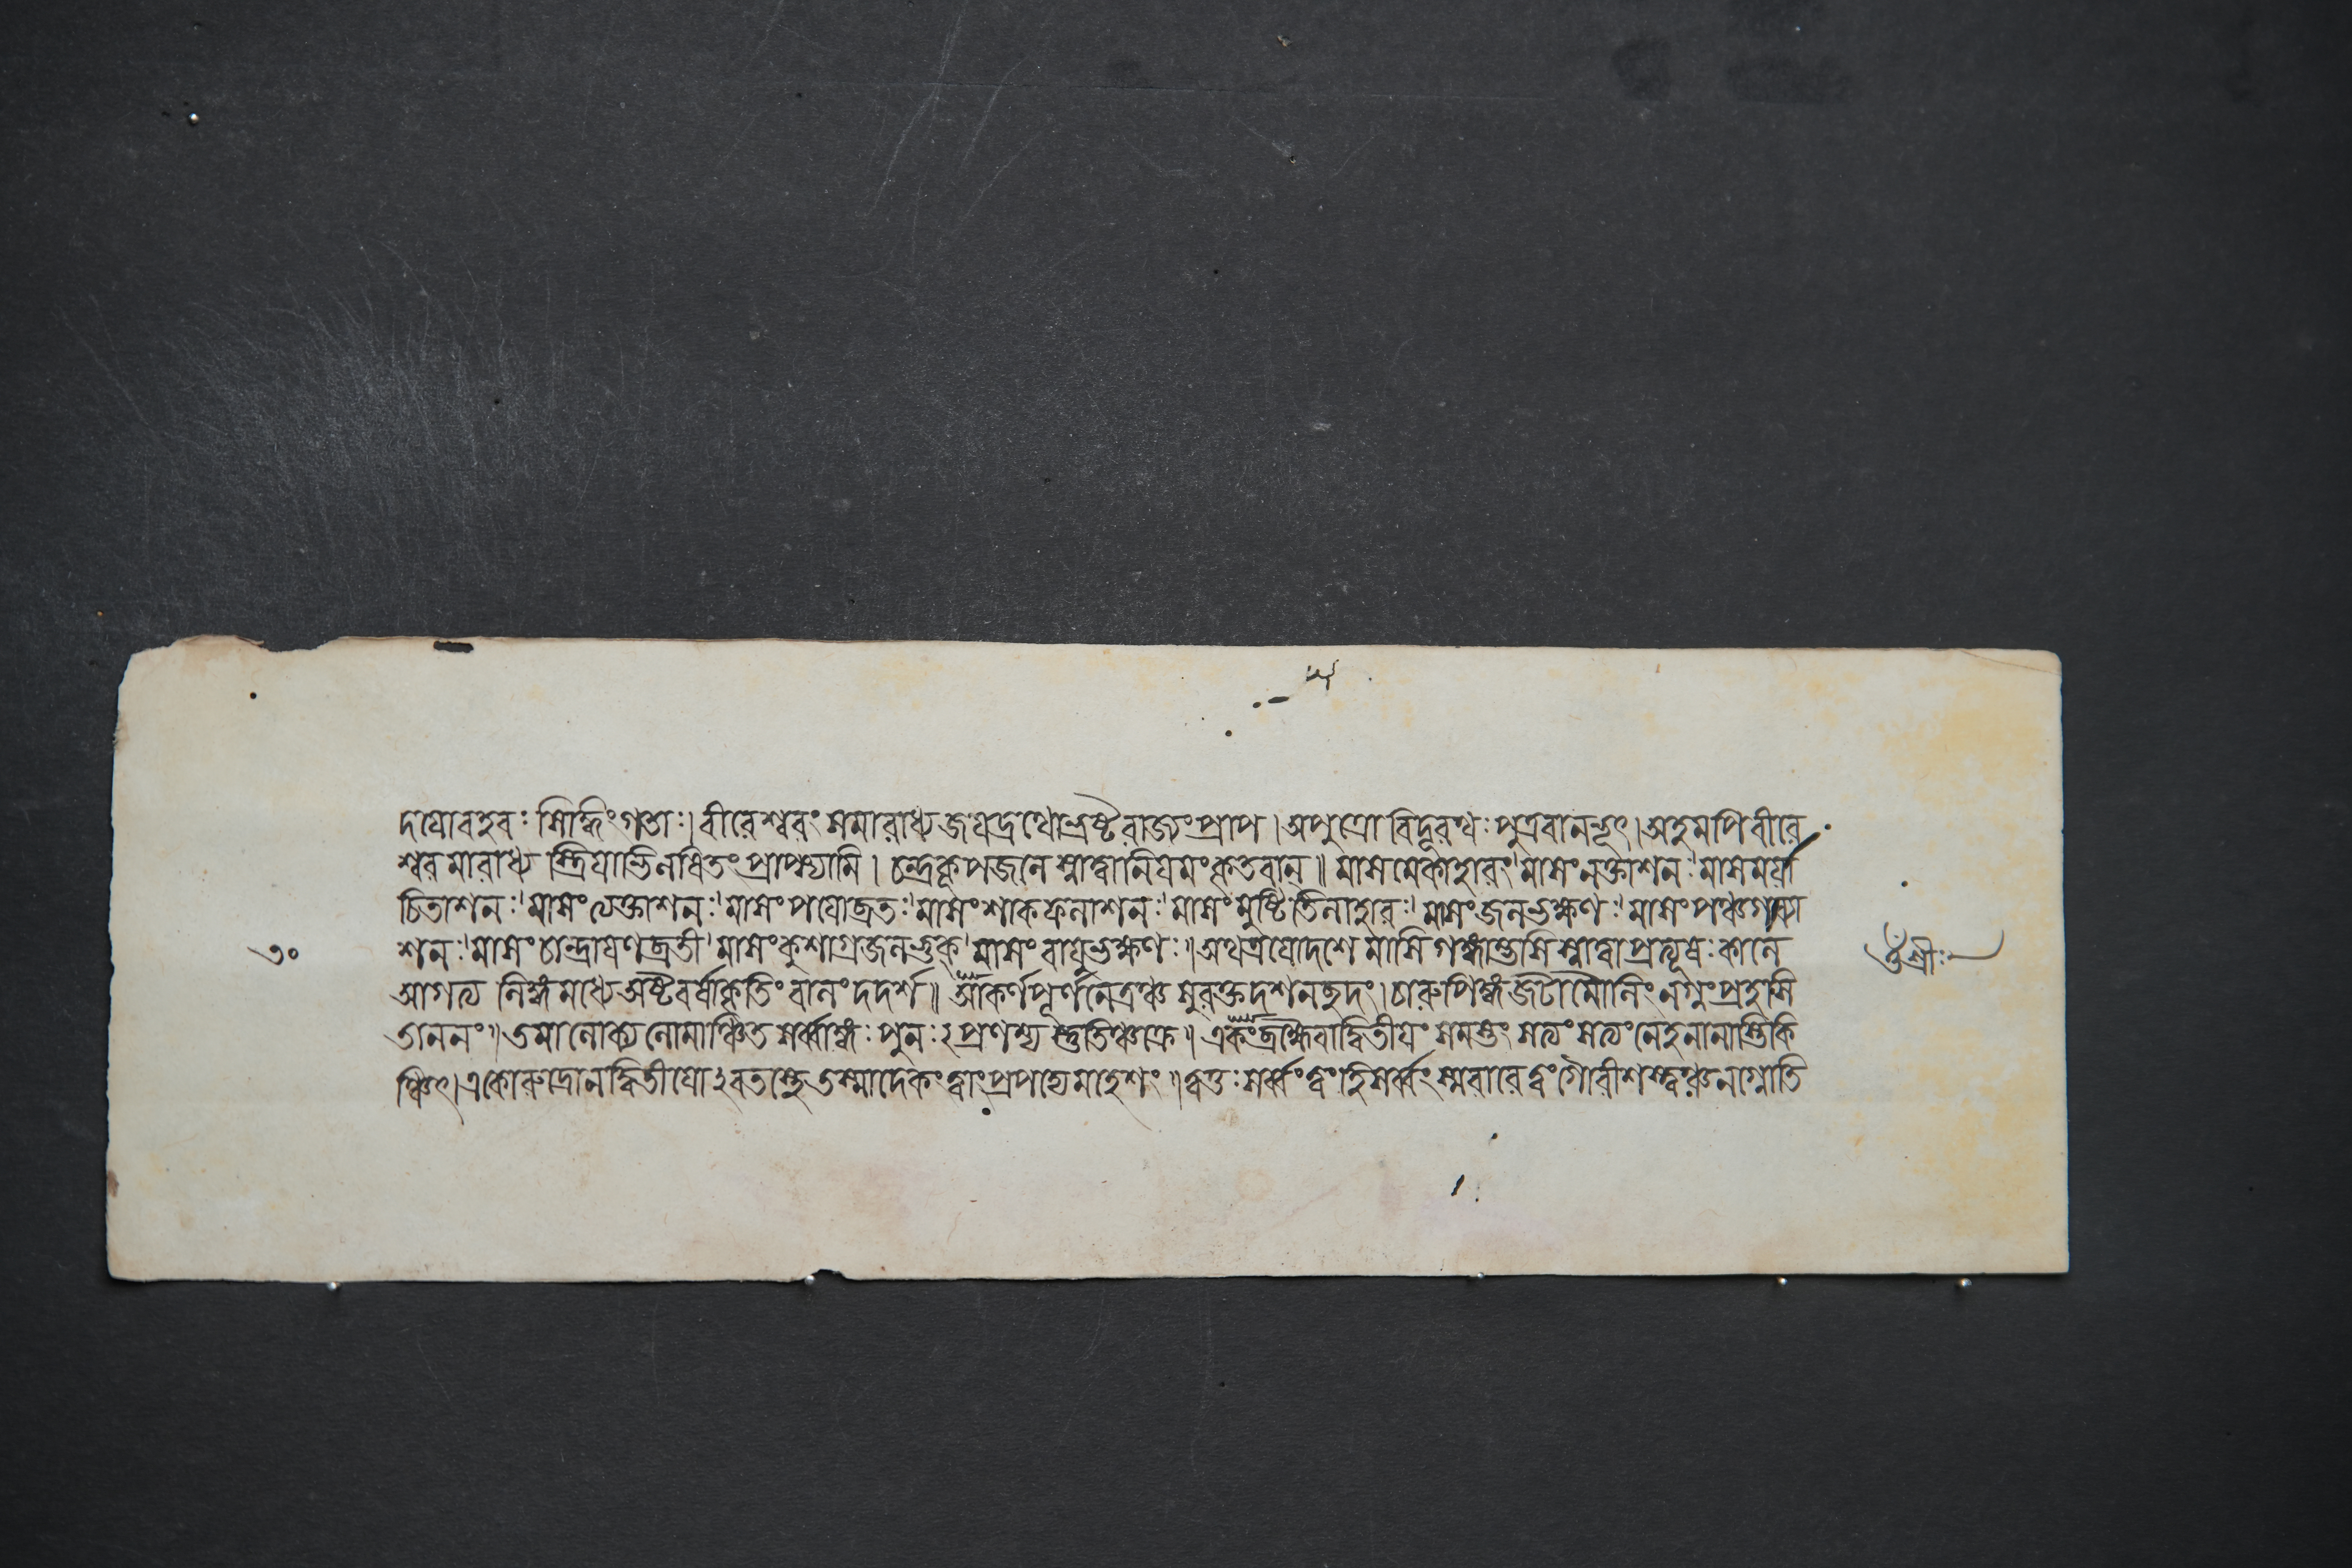 দয়োবহবঃ সিদ্ধিংগতাঃ।বীরেশ্বরং সমারাধ্য জয়দ্রথোভ্রষ্টরাজ্যংপ্রাপ।অপুত্রো বিদূরথঃ পুত্রবানভূৎ।অহমপি বীরে
শ্বর মারাধ্য স্ত্রিয়াভিলষিতং প্রাপ্স্যামি। চন্দ্রকূপজলে স্নাত্বানিয়মং কৃতবান্॥ মাসমেকাহারং।মাসংনক্তাশনঃ।মাসমযা
চিতাশনঃ।মাসং ত্যক্তাশনঃ।মাসং পয়োব্রতঃ।মাসং শাকফলাশনঃ।মাসং মুষ্টিতিলাহারঃ।মাসংজলভক্ষণঃ।মাসং পঞ্চগব্যা
৩০
শনঃ।মাসং চান্দ্রায়ণব্রতী।মাসংকুশাগ্রজলভুক্।মাসং বায়ুভক্ষণঃ॥অথত্রয়োদশে মাসি গঙ্গাম্ভসি স্নাত্বাপ্রত্যূষঃকালে
ওঁ শ্রীঃ
আগত্য লিঙ্গমধ্যে অষ্টবর্ষাকৃতিং বালং দদর্শ॥ আকর্ণপূর্ণনেত্রঞ্চ সুরক্তদশনছদং।চারুপিঙ্গজটামৌলিং নগ্নংপ্রহসি
তাননং॥তমালোক্য লোমাঞ্চিতসর্ব্বাঙ্গঃ পুনঃ২প্রণম্য স্তুতিঞ্চক্রে॥একংব্রহ্মৈবাদ্বিতীয়ং সমস্তং সত্যং সত্যং নেহনানাস্তিকি
ঞ্চিৎ।একোরুদ্রোনদ্বিতীয়োঽবতস্থে তস্মাদেকংত্বাংপ্রপদ্যেমহেশং॥ত্বত্তঃসর্ব্বংত্বংহিসর্ব্বংস্মরারে ত্বংগৌরীশস্ত্বঞ্চনগ্নোতি